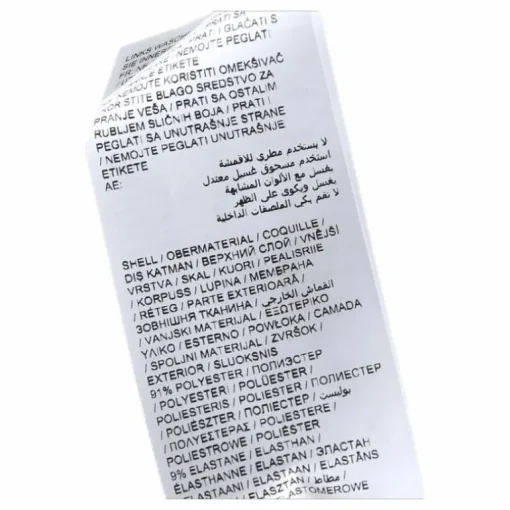 LINKS
PRATI SA
PRATI / GLAČATI S
NEMOJTE PEGLATI
ETIKETE
NEMOJTE KORISTITI OMEKŠIVAČ
KORISTITE BLAGO SREDSTVO ZA
PRANJE VEŠA / PRATI SA OSTALIM
RUBLJEM SLIČNIH BOJA / PRATI I
PEGLATI SA UNUTRAŠNJE STRANE
/ NEMOJTE PEGLATI UNUTRAŠNJE
ETIKETE
AE:
لا يستخدم مطري للاقمشة
استخدم مسحوق غسيل معتدل
يغسل مع الألوان المشابهة
يغسل ويكوى على الظهر
لا تقم بكي الملصقات الداخلية
SHELL / OBERMATERIAL / COQUILLE /
DIŞ KATMAN / ВЕРХНИЙ СЛОЙ / VNĚJŠÍ
VRSTVA / SKAL / KUORI / PEALISRIIE
/ KORPUSS / LUPINA / МЕМБРАНА
/ RÉTEG / PARTE EXTERIOARĂ /
ЗОВНІШНЯ ТКАНИНА / القماش الخارجي
/ VANJSKI MATERIJAL / ΕΞΩΤΕΡΙΚΟ
ΥΛΙΚΟ / ESTERNO / POWŁOKA / CAMADA
/ SPOLJNI MATERIJAL / ZVRŠOK /
EXTERIOR / SLUOKSNIS
91% POLYESTER / ПОЛИЭСТЕР
/ POLYESTERI / POLÜESTER /
POLIESTERIS / POLIESTER / ПОЛИЕСТЕР
/ POLIÉSZTER / ПОЛІЕСТЕР / بوليستر
/ ΠΟΛΥΕΣΤΕΡΑΣ / POLIESTERE /
POLIESTROWE / POLIÉSTER
9% ELASTANE / ELASTHAN /
ÉLASTHANNE / ELASTAN / ЭЛАСТАН
/ ELASTAANI / ELASTAAN / ELASTĀNS
/ ELASZTÁN / مطاط /
ELASTOMEROWE